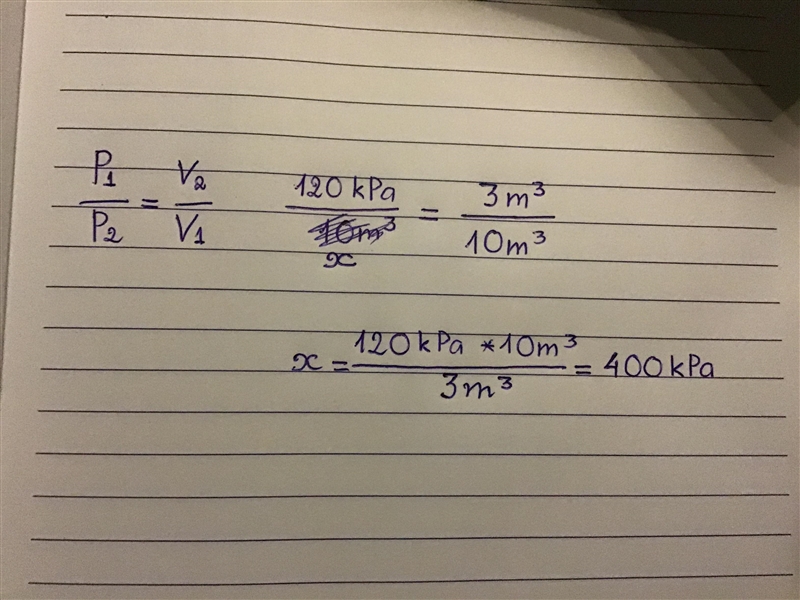 P₁/P₂ = V₂/V₁ 120 kPa/x = 3m³/10m³
x = 120 kPa * 10m³/3m³ = 400 kPa